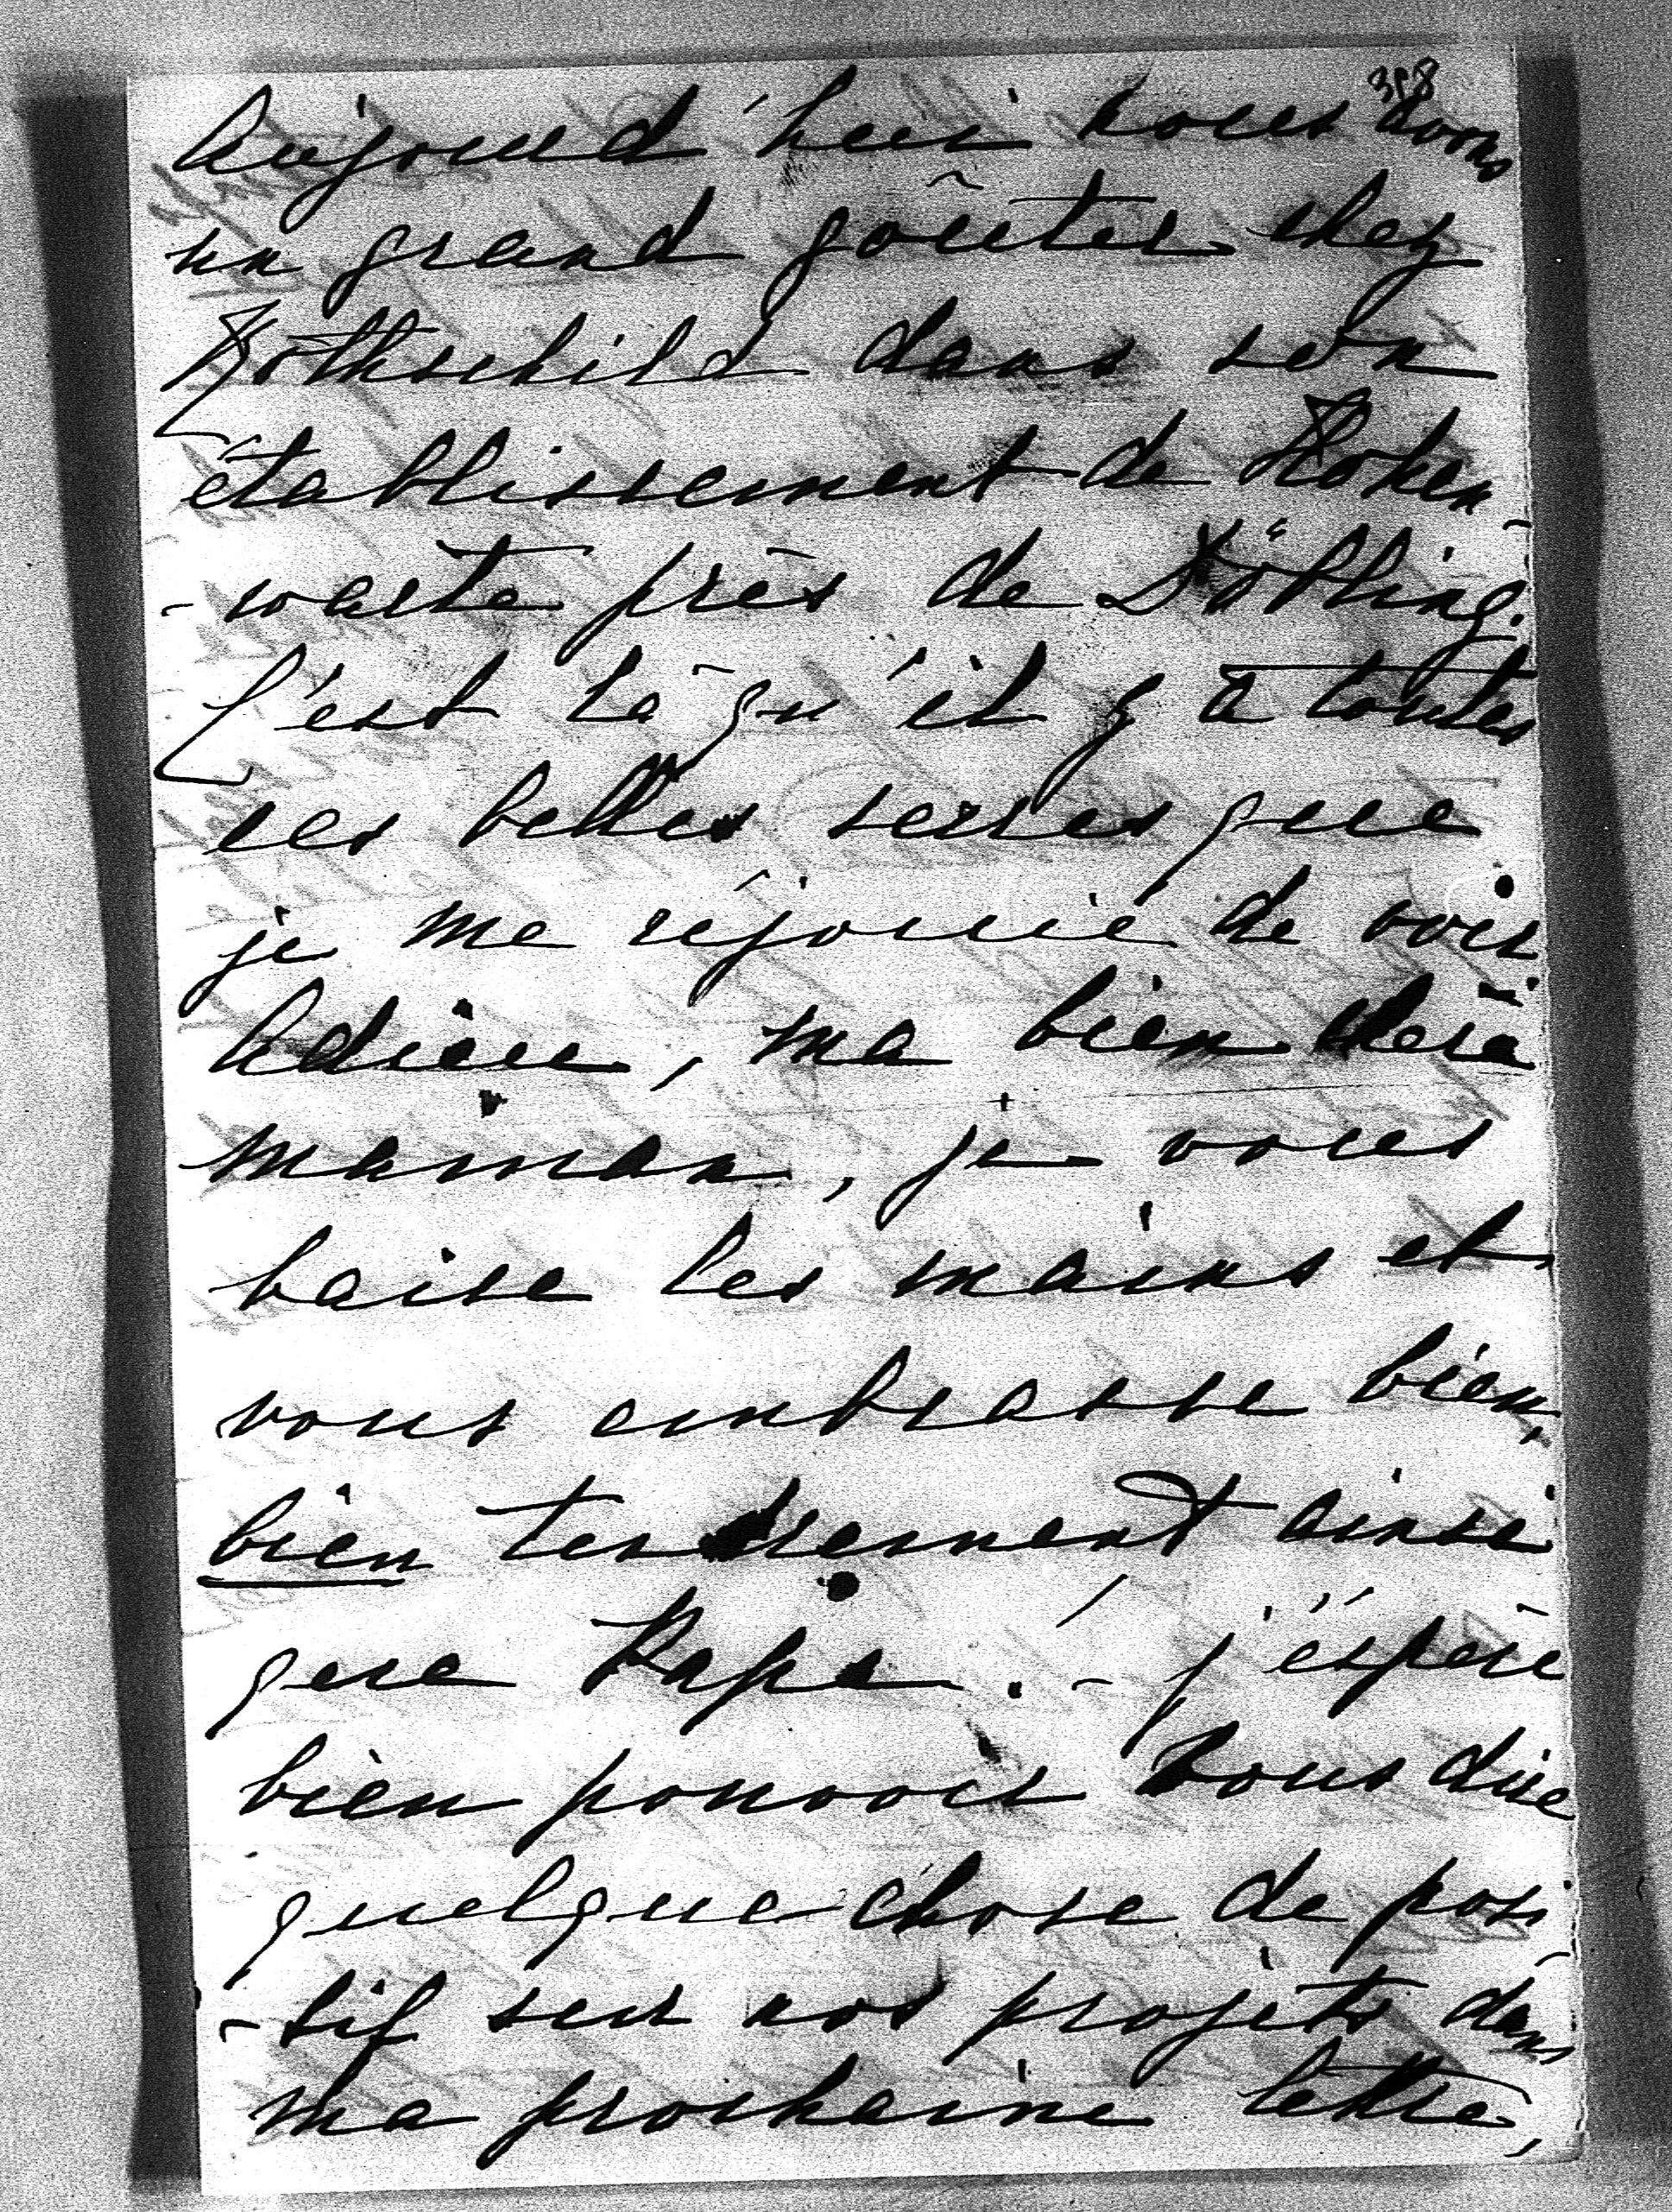 358
Aujourd'hui nous avons
un grand goûter chez
Rothschild dans son
établissement de Hohen-
-warte près de Döbling.
C'est là qu'il y a toutes
ces belles serres que
je me réjouie de voir
Adieu, ma bien chère
maman, je vous
baise les mains et
vous embrasse bien,
bien tendrement ainsi
que Papa. - j'éspère
bien pouvoir vous dire
quelque chose de posi
-tif sur nos projets dans
ma prochaine lettre,